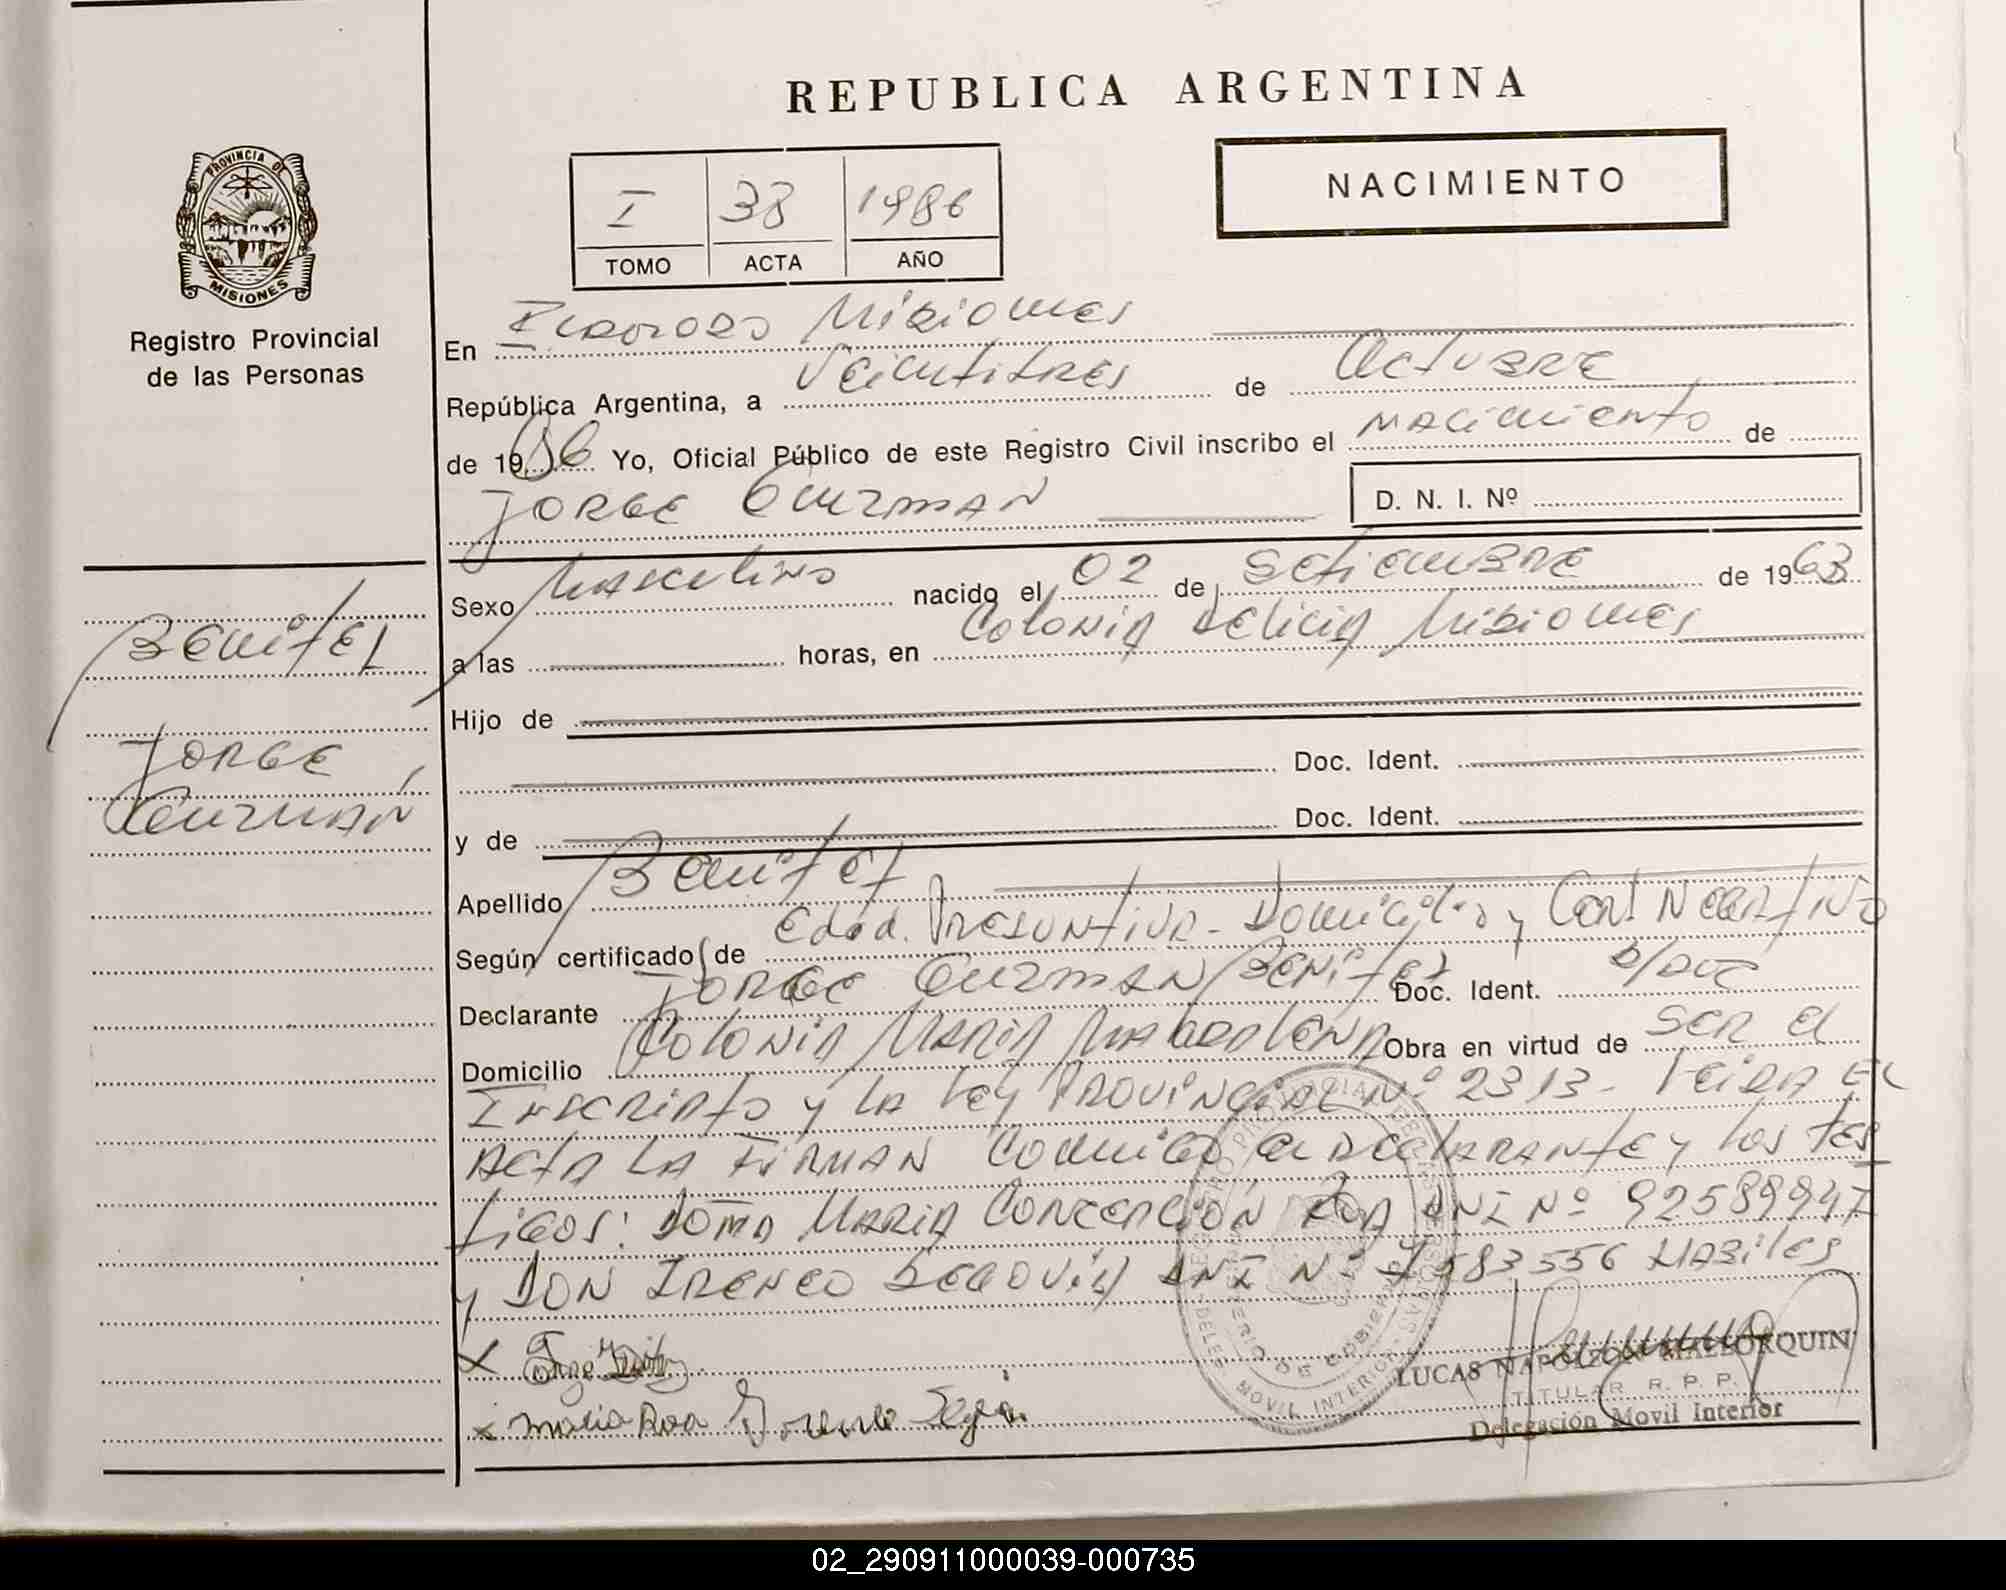 REPUBLICA ARGENTINA
NACIMIENTO
I 38 1986
TOMO ACTA AÑO
PROVINCIA DE
MISIONES
Registro Provincial
de las Personas
En Eldorado Misiones
República Argentina, a Veintitres de Octubre
de 1986 Yo, Oficial Público de este Registro Civil inscribo el nacimiento de
Jorge Guzman D. N. I. Nº
Sexo Masculino nacido el 02 de Setiembre de 1963
a las horas, en Colonia Delicia Misiones
Benitez
Hijo de
Jorge
Guzman
Doc. Ident.
y de Doc. Ident.
Apellido Benitez
Según certificado de Edad Presuntiva - Domicilio y Cert Negativo
Declarante Jorge Guzman Benitez Doc. Ident. s/doc
Domicilio Colonia Maria Magdalena Obra en virtud de ser el
Inscripto y la Ley Provincial Nº 2313 - Leida el
Acta la firman conmigo el declarante y los tes
tigos: Doña Maria Concepcion Roa DNI Nº 92589947
y Don Ireneo Segovia DNI Nº 7583556 Habiles
x Jorge Benitez
x Maria Roa Segovia
LUCAS NAPOLEON MALLORQUIN
TITULAR R. P. P.
Delegación Movil Interior
02_290911000039-000735